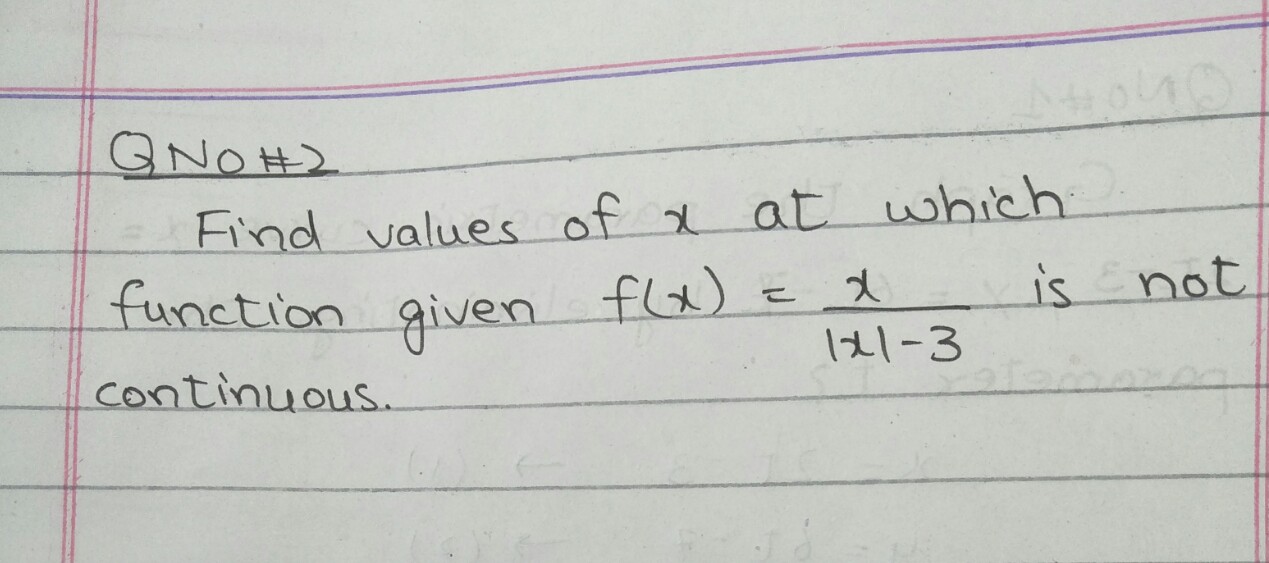 Q NO #2
Find values of x at which
function given f(x) = x / |x|-3 is not
continuous.